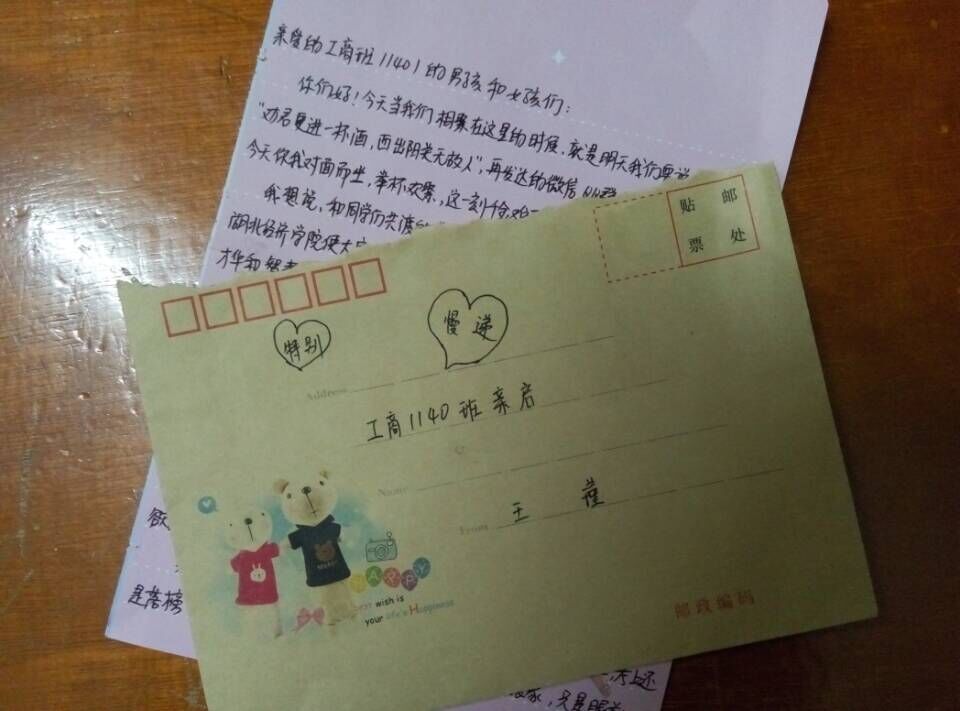 亲爱的工商班11401的男孩和女孩们：
你们好！今天当我们相聚在这里的时候，就是明天我们要说
“劝君更进一杯酒，西出阳关无故人”，再发达的微信
今天你我对面而坐，举杯欢聚，这一刻
我想说，和同学们共渡
湖北经济学院使大
才华和
贴 邮
票 处
特别
慢递
Address
工商1140班亲启
Name
From 王 蕹
HAPPY
best wish is
your life's Happiness
邮政编码
是落榜
，考上还